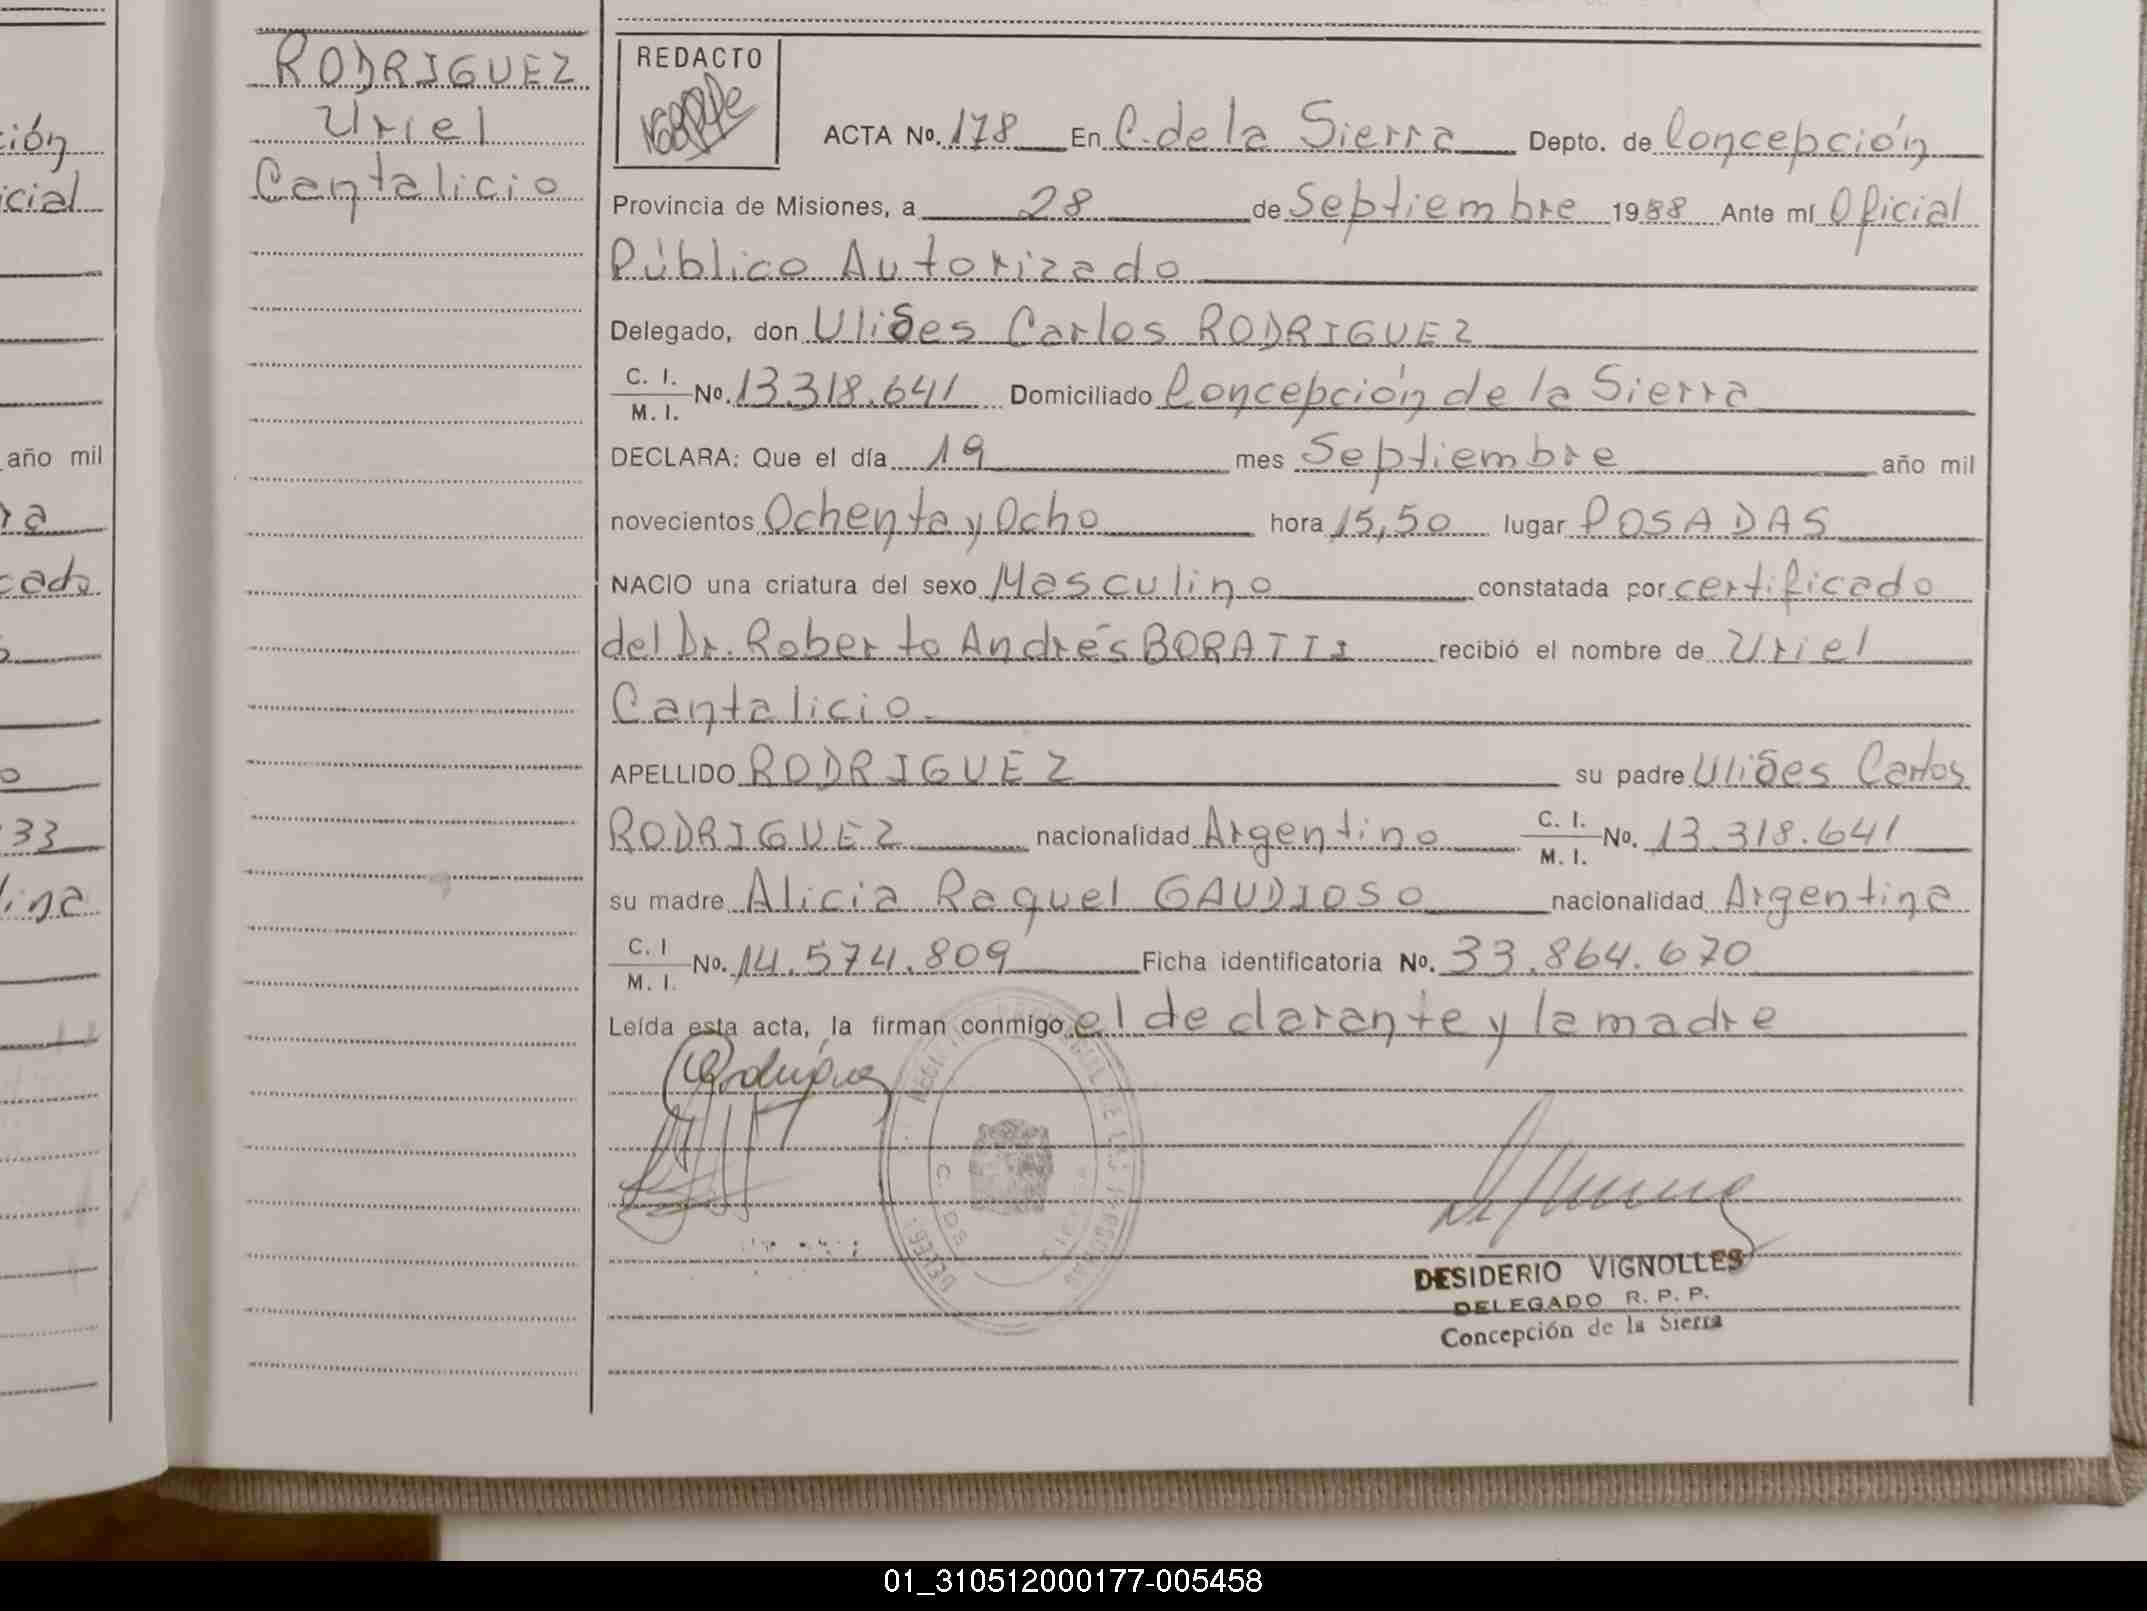 RODRIGUEZ
Uriel
Cantalicio
REDACTO
ACTA No. 178 En C. de la Sierra Depto. de Concepción
Provincia de Misiones, a 28 de Septiembre 1988 Ante mí Oficial
Público Autorizado
Delegado, don Ulises Carlos RODRIGUEZ
C. I. / M. I. No. 13.318.641 Domiciliado Concepción de la Sierra
DECLARA: Que el día 19 mes Septiembre año mil
novecientos Ochenta y Ocho hora 15,50 lugar POSADAS
NACIO una criatura del sexo Masculino constatada por certificado
del Dr. Roberto Andrés BORATTI recibió el nombre de Uriel
Cantalicio
APELLIDO RODRIGUEZ su padre Ulises Carlos
RODRIGUEZ nacionalidad Argentino C. I. / M. I. No. 13.318.641
su madre Alicia Raquel GAUDIOSO nacionalidad Argentina
C. I / M. I. No. 14.574.809 Ficha identificatoria No. 33.864.670
Leída esta acta, la firman conmigo el declarante y la madre
DESIDERIO VIGNOLLES
DELEGADO R. P. P.
Concepción de la Sierra
ción
icial
año mil
ra
cado
33
lina
01_310512000177-005458